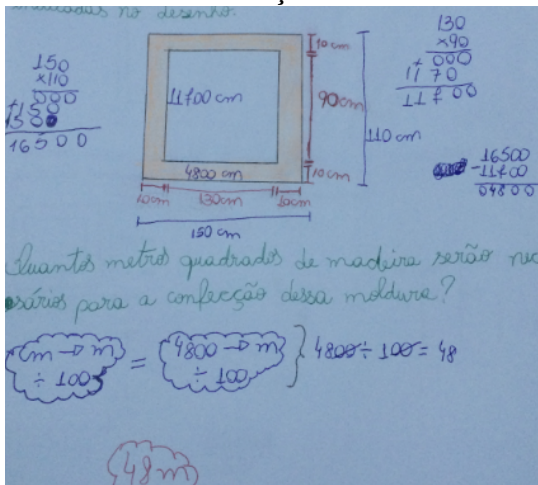 indicadas no desenho.
150
×110
000
+150
150
16500
10 cm
11700 cm
90cm
110 cm
4800 cm
10 cm
10cm
130 cm
10cm
150 cm
130
×90
+000
1170
11700
16500
-11700
04800
Quantos metros quadrados de madeira serão nec
esários para a confecção dessa moldura?
cm → m
÷ 100
=
4800 → m
÷ 100
} 4800 ÷ 100 = 48
48 m